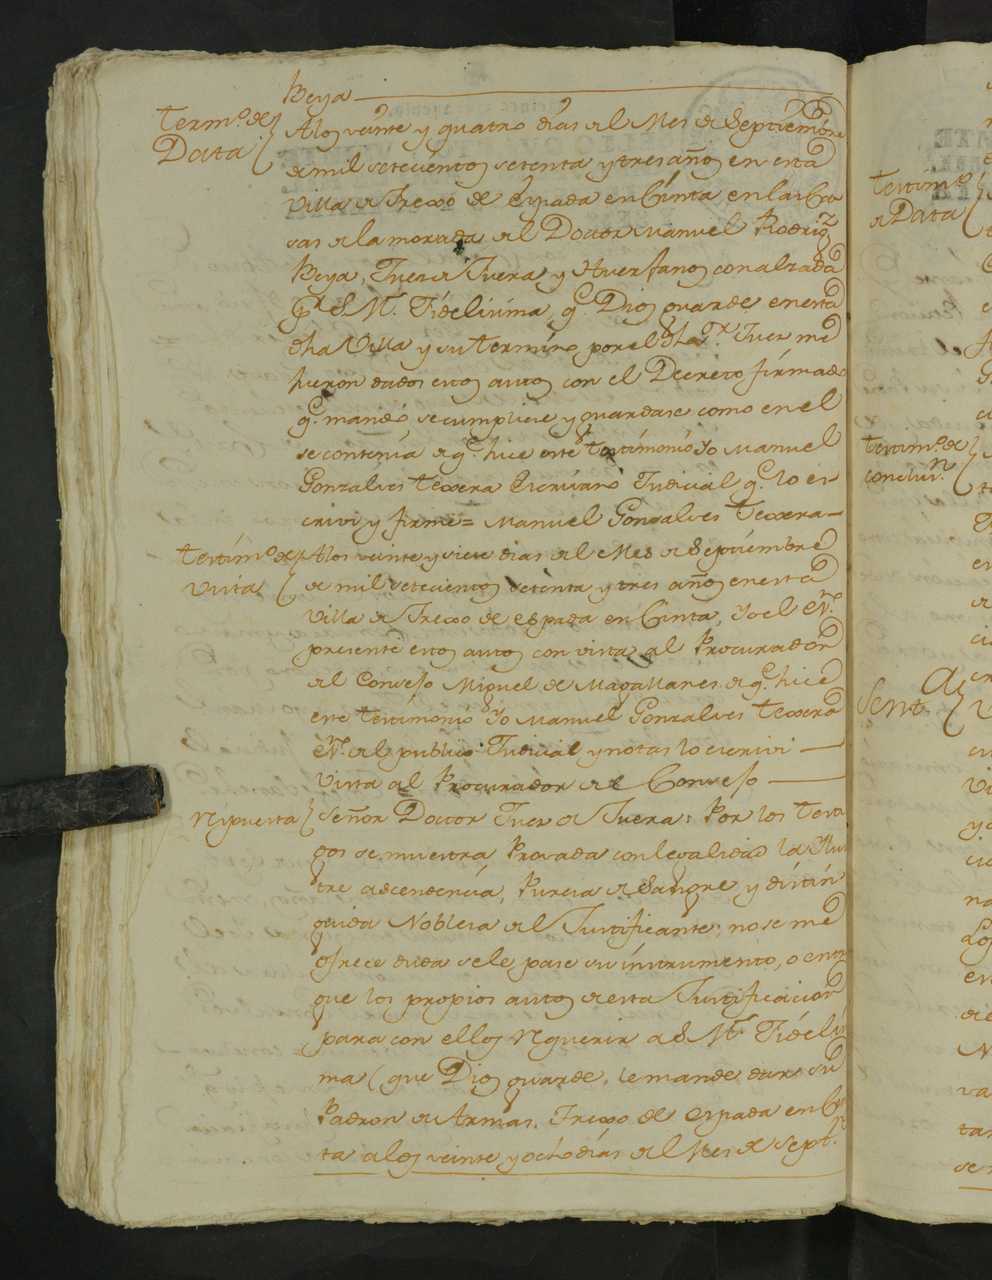 Beya
Termº de
Data
Alos veinte y quatro dias del Mes de Septiembre
de mil setecientos setenta y tres años en esta
Villa de Frexo de Espada en Cinta en las Ca
sas de la morada del Doctor Manuel Rodrigz
Beya, Juez de Fuera y Huerfanos con alzada
pr S. Mr. Fidelisima, q. Dios guarde en esta
dha Villa y su termino por el dho Sr. Juez me
fueron dados estos autos con el Decreto firmado
q. mandó se cumpliese y guardase como en el
se contenia de q. hice este testimonio Yo Manuel
Gonzalves Texera Escrivano Judicial q. lo es-
crivi y firme = Manuel Gonsalves Texera
Testimº de
Vista
Alos veinte y siete dias del Mes de Septiembre
de mil setecientos setenta y tres años en esta
Villa de Frexo de Espada en Cinta, Yo el Eno.
presente estos autos con vista al Procurador
del Consejo Miguel de Magallanes de q. hice
este testimonio Yo Manuel Gonzalves Texera
Eno. del publico Judicial y notas lo escrivi
Vista al Procurador del Consejo
Rspuesta
Señor Doctor Juez de Fuera: Por los Testi
gos se muestra Provada con legalidad la Ilus
tre ascendencia, Pureza de Sangre, y distin
guida Nobleza del Justificante; no se me
ofrece duda se le pase su instrumento, o entr
que los propios autos de esta Justificacion
para con ellos Rquerir a S. Mr Fidelis
ma (que Dios guarde, le mande dar su
Padron de Armas. Frexo de Espada en Cin
ta a los veinte y ocho dias del Mes de Sept.
Testimº
de Data
Testimº de
conclus.n
Sent.a